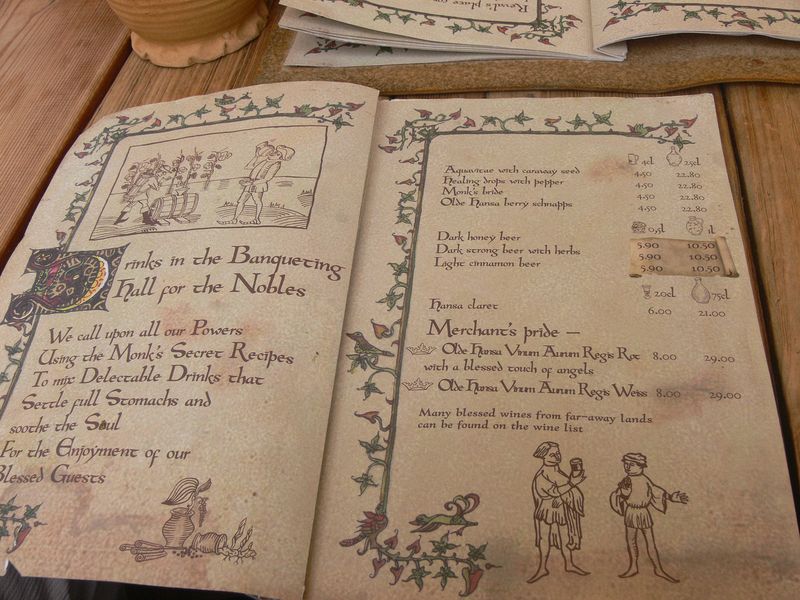 Reval's place
Drinks in the Banqueting
Hall for the Nobles
We call upon all our Powers
Using the Monk's Secret Recipes
To mix Delectable Drinks that
Settle full Stomachs and
soothe the Soul
For the Enjoyment of our
Blessed Guests
4cl 25cl
Aquavitae with caraway seed 4.50 22.80
Healing drops with pepper 4.50 22.80
Monk's bride 4.50 22.80
Olde Hansa berry schnapps 4.50 22.80
0,5l 1l
Dark honey beer 5.90 10.50
Dark strong beer with herbs 5.90 10.50
Light cinnamon beer 5.90 10.50
20cl 75cl
Hansa claret 6.00 21.00
Merchant's pride –
Olde Hansa Vinum Aurum Regis Rot 8.00 29.00
with a blessed touch of angels
Olde Hansa Vinum Aurum Regis Weiss 8.00 29.00
Many blessed wines from far-away lands
can be found on the wine list